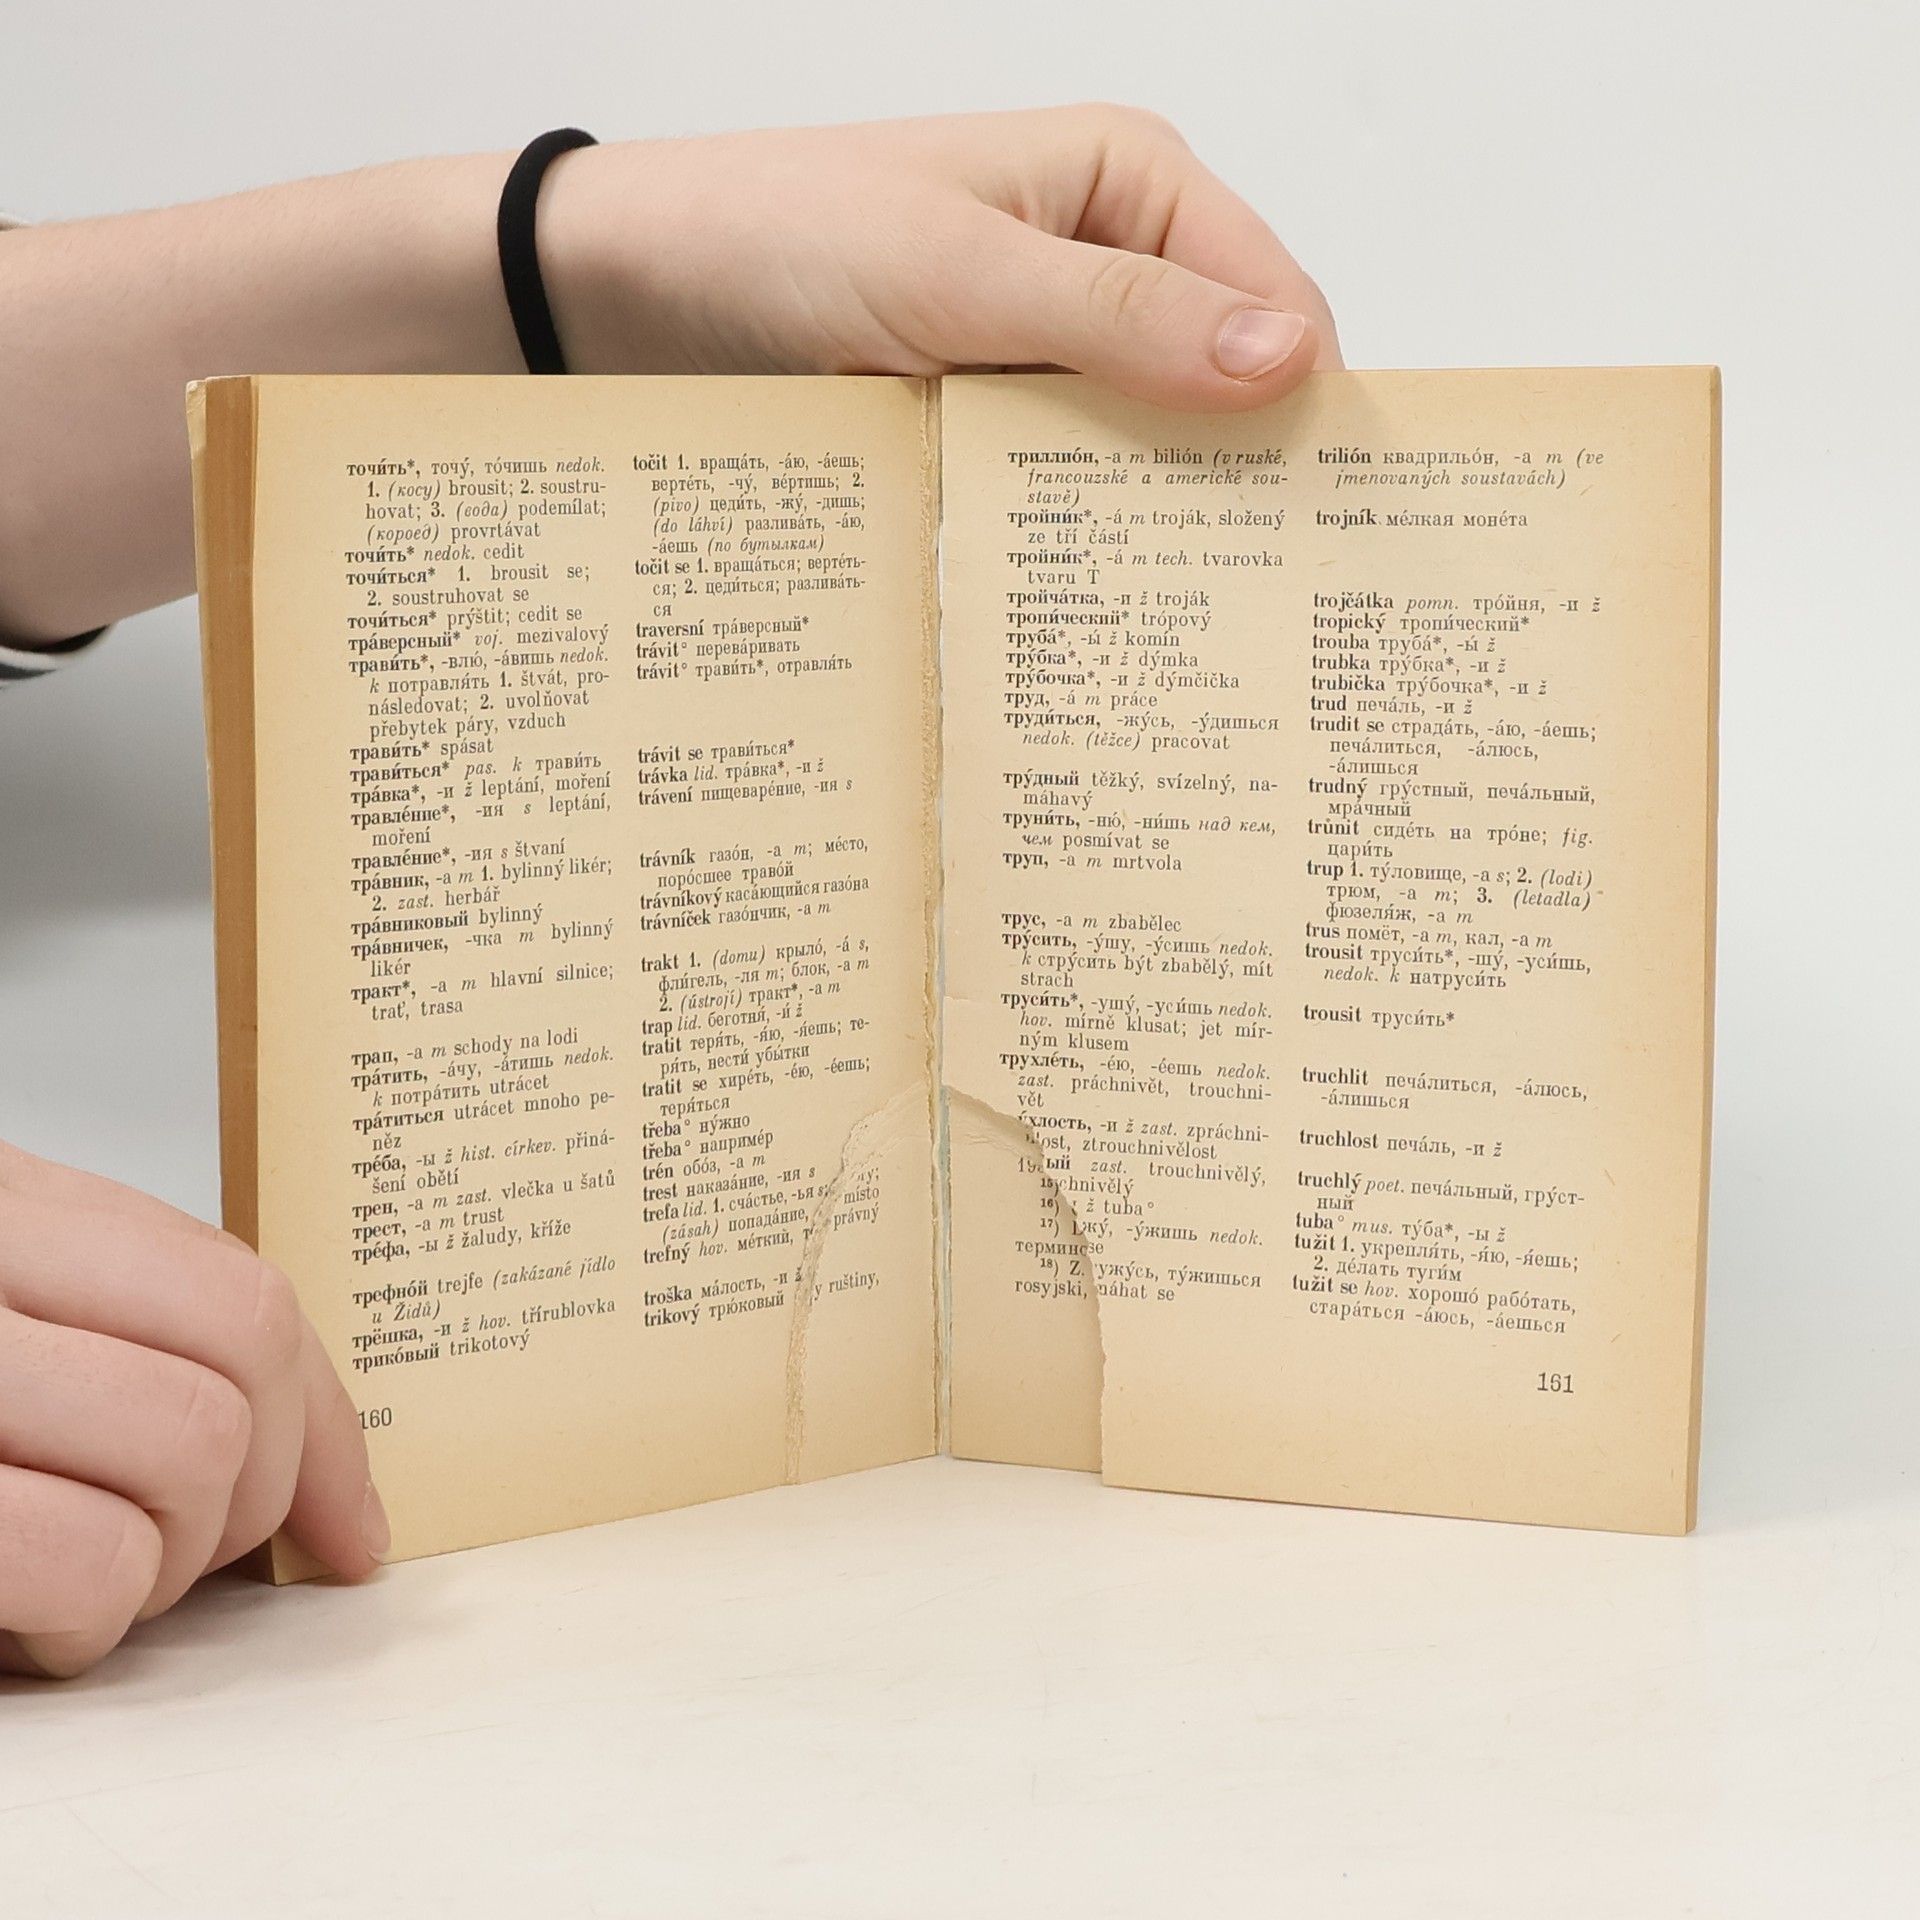 точи́ть*, точу́, то́чишь nedok.
1. (косу) brousit; 2. soustru-
hovat; 3. (вода) podemílat;
(короед) provrtávat
точи́ть* nedok. cedit
точи́ться* 1. brousit se;
2. soustruhovat se
точи́ться* prýštit; cedit se
тра́версный* voj. mezivalový
трави́ть*, -влю́, -а́вишь nedok.
k потравля́ть 1. štvát, pro-
následovat; 2. uvolňovat
přebytek páry, vzduch
трави́ть* spásat
трави́ться* pas. k трави́ть
тра́вка*, -и ž leptání, moření
травле́ние*, -ия s leptání,
moření
травле́ние*, -ия s štvaní
тра́вник, -а m 1. bylinný likér;
2. zast. herbář
тра́вниковый bylinný
тра́вничек, -чка m bylinný
likér
тракт*, -а m hlavní silnice;
trať, trasa
трап, -а m schody na lodi
тра́тить, -а́чу, -а́тишь nedok.
k потра́тить utrácet
тра́титься utrácet mnoho pe-
něz
тре́ба, -ы ž hist. církev. přiná-
šení obětí
трен, -а m zast. vlečka u šatů
трест, -а m trust
тре́фа, -ы ž žaludy, kříže
трефно́й trejfe (zakázané jídlo
u Židů)
трёшка, -и ž hov. třírublovka
трико́вый trikotový
160
točit 1. враща́ть, -а́ю, -а́ешь;
верте́ть, -чу́, ве́ртишь; 2.
(pivo) цеди́ть, -жу́, -дишь;
(do láhví) разлива́ть, -а́ю,
-а́ешь (по бутылкам)
točit se 1. враща́ться; верте́ть-
ся; 2. цеди́ться; разлива́ть-
ся
traversní тра́версный*
trávit° перева́ривать
trávit° трави́ть*, отравля́ть
trávit se трави́ться*
trávka lid. тра́вка*, -и ž
trávení пищеваре́ние, -ия s
trávník газо́н, -а m; ме́сто,
поро́сшее траво́й
trávníkový каса́ющийся газо́на
trávníček газо́нчик, -а m
trakt 1. (domu) крыло́, -а́ s,
фли́гель, -ля m; блок, -а m
2. (ústrojí) тракт*, -а m
trap lid. беготня́, -и́ ž
tratit теря́ть, -я́ю, -я́ешь; те-
ря́ть, нести́ убы́тки
tratit se хире́ть, -е́ю, -е́ешь;
теря́ться
třeba° ну́жно
třeba° наприме́р
trén обо́з, -а m
trest наказа́ние, -ия s
trefa lid. 1. сча́стье, -ья s; místo
(zásah) попада́ние, právný
trefný hov. ме́ткий,
troška ма́лость, -и ž
trikový трю́ковый y ruštiny,
триллио́н, -а m bilión (v ruské,
francouzské a americké sou-
stavě)
тройни́к*, -а́ m troják, složený
ze tří částí
тройни́к*, -а́ m tech. tvarovka
tvaru T
тройча́тка, -и ž troják
тропи́ческий* trópový
труба́*, -ы́ ž komín
тру́бка*, -и ž dýmka
тру́бочка*, -и ž dýmčička
труд, -а́ m práce
труди́ться, -жу́сь, -у́дишься
nedok. (těžce) pracovat
тру́дный těžký, svízelný, na-
máhavý
труни́ть, -ню́, -ни́шь над кем,
чем posmívat se
труп, -а m mrtvola
трус, -а m zbabělec
тру́сить, -у́шу, -у́сишь nedok.
k стру́сить být zbabělý, mít
strach
труси́ть*, -ушу́, -уси́шь nedok.
hov. mírně klusat; jet mír-
ným klusem
трухле́ть, -е́ю, -е́ешь nedok.
zast. práchnivět, trouchni-
vět
у́хлость, -и ž zast. zpráchni-
lost, ztrouchnivělost
лый zast. trouchnivělý,
15) chnivělý
16) ž tuba°
17) жу́, -у́жишь nedok.
терминo se
18) Z. ужу́сь, ту́жишься
rosyjski, máhat se
trilión квадрильо́н, -а m (ve
jmenovaných soustavách)
trojník ме́лкая моне́та
trojčátka pomn. тро́йня, -и ž
tropický тропи́ческий*
trouba труба́*, -ы́ ž
trubka тру́бка*, -и ž
trubička тру́бочка*, -и ž
trud печа́ль, -и ž
trudit se страда́ть, -а́ю, -а́ешь;
печа́литься, -а́люсь,
-а́лишься
trudný гру́стный, печа́льный,
мра́чный
trůnit сиде́ть на тро́не; fig.
цари́ть
trup 1. ту́ловище, -а s; 2. (lodi)
трюм, -а m; 3. (letadla)
фюзеля́ж, -а m
trus помёт, -а m, кал, -а m
trousit труси́ть*, -шу́, -уси́шь,
nedok. k натруси́ть
trousit труси́ть*
truchlit печа́литься, -а́люсь,
-а́лишься
truchlost печа́ль, -и ž
truchlý poet. печа́льный, гру́ст-
ный
tuba° mus. ту́ба*, -ы ž
tužit 1. укрепля́ть, -я́ю, -я́ешь;
2. де́лать туги́м
tužit se hov. хорошо́ рабо́тать,
стара́ться -а́юсь, -а́ешься
161